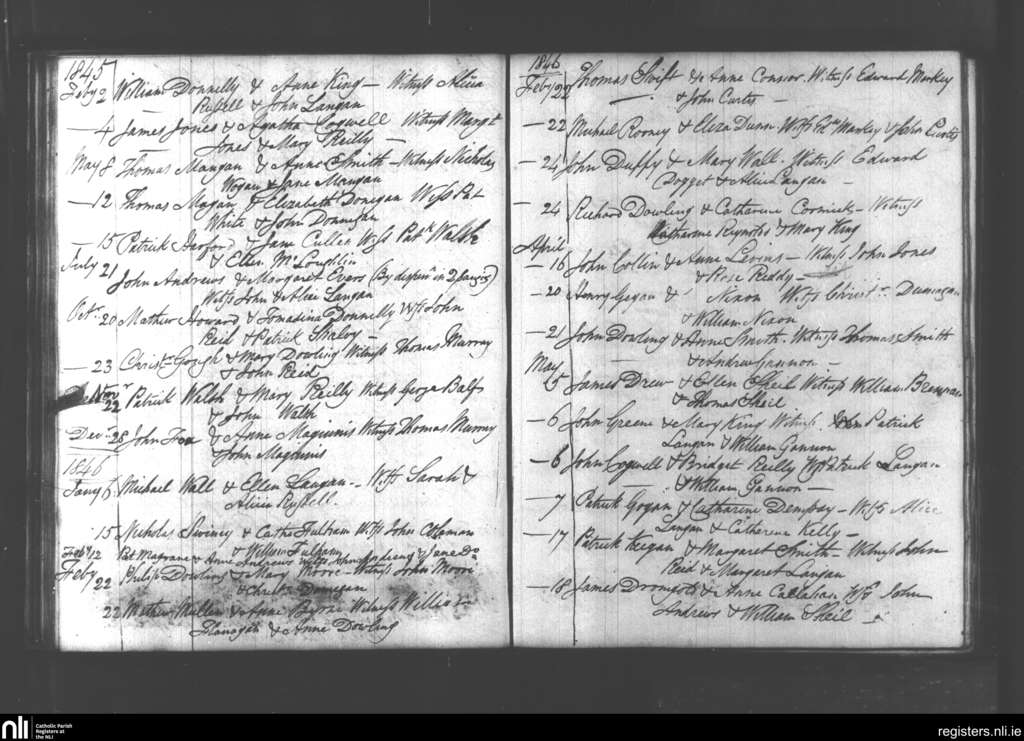 1845
Feby 2 William Donnelly & Anne King — Witness Alicia
Russell & John Langan
— 4 James Jones & Agatha Cogwell Witness Margt
Jones & Mary Reilly —
May 8 Thomas Mangan & Anne Smith — Witness Nicholas
Hogan & Jane Mangan
— 12 Thomas Magan & Elizabeth Donegan Wess Pat
White & John Donnegan
— 15 Patrick Harford & Jane Cullen Wess Patk Walsh
& Ellen McLoughlin
July 21 John Andrews & Margaret Evars (By dispenn in 2 )
Witss John & Alice Langan
Oct. 20 Mathew Howard & Tomasina Donnelly Wss John
Reid & Patrick Shaloy —
— 23 Christr Gough & Mary Dowling Witness Thomas Murray
& John Reid
Novr 22 Patrick Walsh & Mary Reilly Witness George Balfs
& John Walsh
Decr 28 John Fox & Anne Maginnis Witness Thomas Murray
John Maginnis
1846
Jany 6 Michael Wall & Ellen Langan — Witss Sarah &
Alicia Russell.
15 Nicholas Swiney & Cathe Fulham Witss John Coleman
& William Fulham
Feby 12 Pat Magrane & Anne Andrews Witss & Jane Do
Feby 22 Philip Dowling & Mary Moore — Witness John Moore
& Christr Donnegan
22 Mathew Mullen & Anne Byrne Witness William
Flanagan & Anne Dowling
1846
Feby 22 Thomas Swift & Anne Connor. Witness Edward Markey
& John Curtis —
— 22 Michael Rooney & Eliza Dunn Witss Edw Markey & John Curtis
— 24 John Duffy & Mary Wall. Witness Edward
Dogget & Alice Langan —
— 24 Richard Dowling & Catharene Cormick — Witness
Catharene Reynolds & Mary King
April
— 16 John Collin & Anne Levins — Witness John Jones
& Rose Reddy —
— 20 Henry Gegan & Nixon Witss Christr Dunnigan
& William Nixon
— 21 John Dowling & Anne Smith. Witness Thomas Smith
& Andrew Gannon —
May
15 James Drew & Ellen Sheil Witness William Brennan
& Thomas Sheil
— 6 John Greene & Mary King Witness Patrick
Langan & William Gannon
— 6 John Cogwell & Bridget Reilly Wss Patrick Langan
& William Gannon —
— 7 Patrick Gogan & Catharine Dempsay — Witss Alice
Langan & Catherene Kelly —
— 17 Patrick Keegan & Margaret Smith — Witness John
Reid & Margaret Langan
— 18 James Dromgold & Anne Callahan Wss John
Andrews & William Sheil —
nli
Catholic Parish
Registers at
the NLI
registers.nli.ie